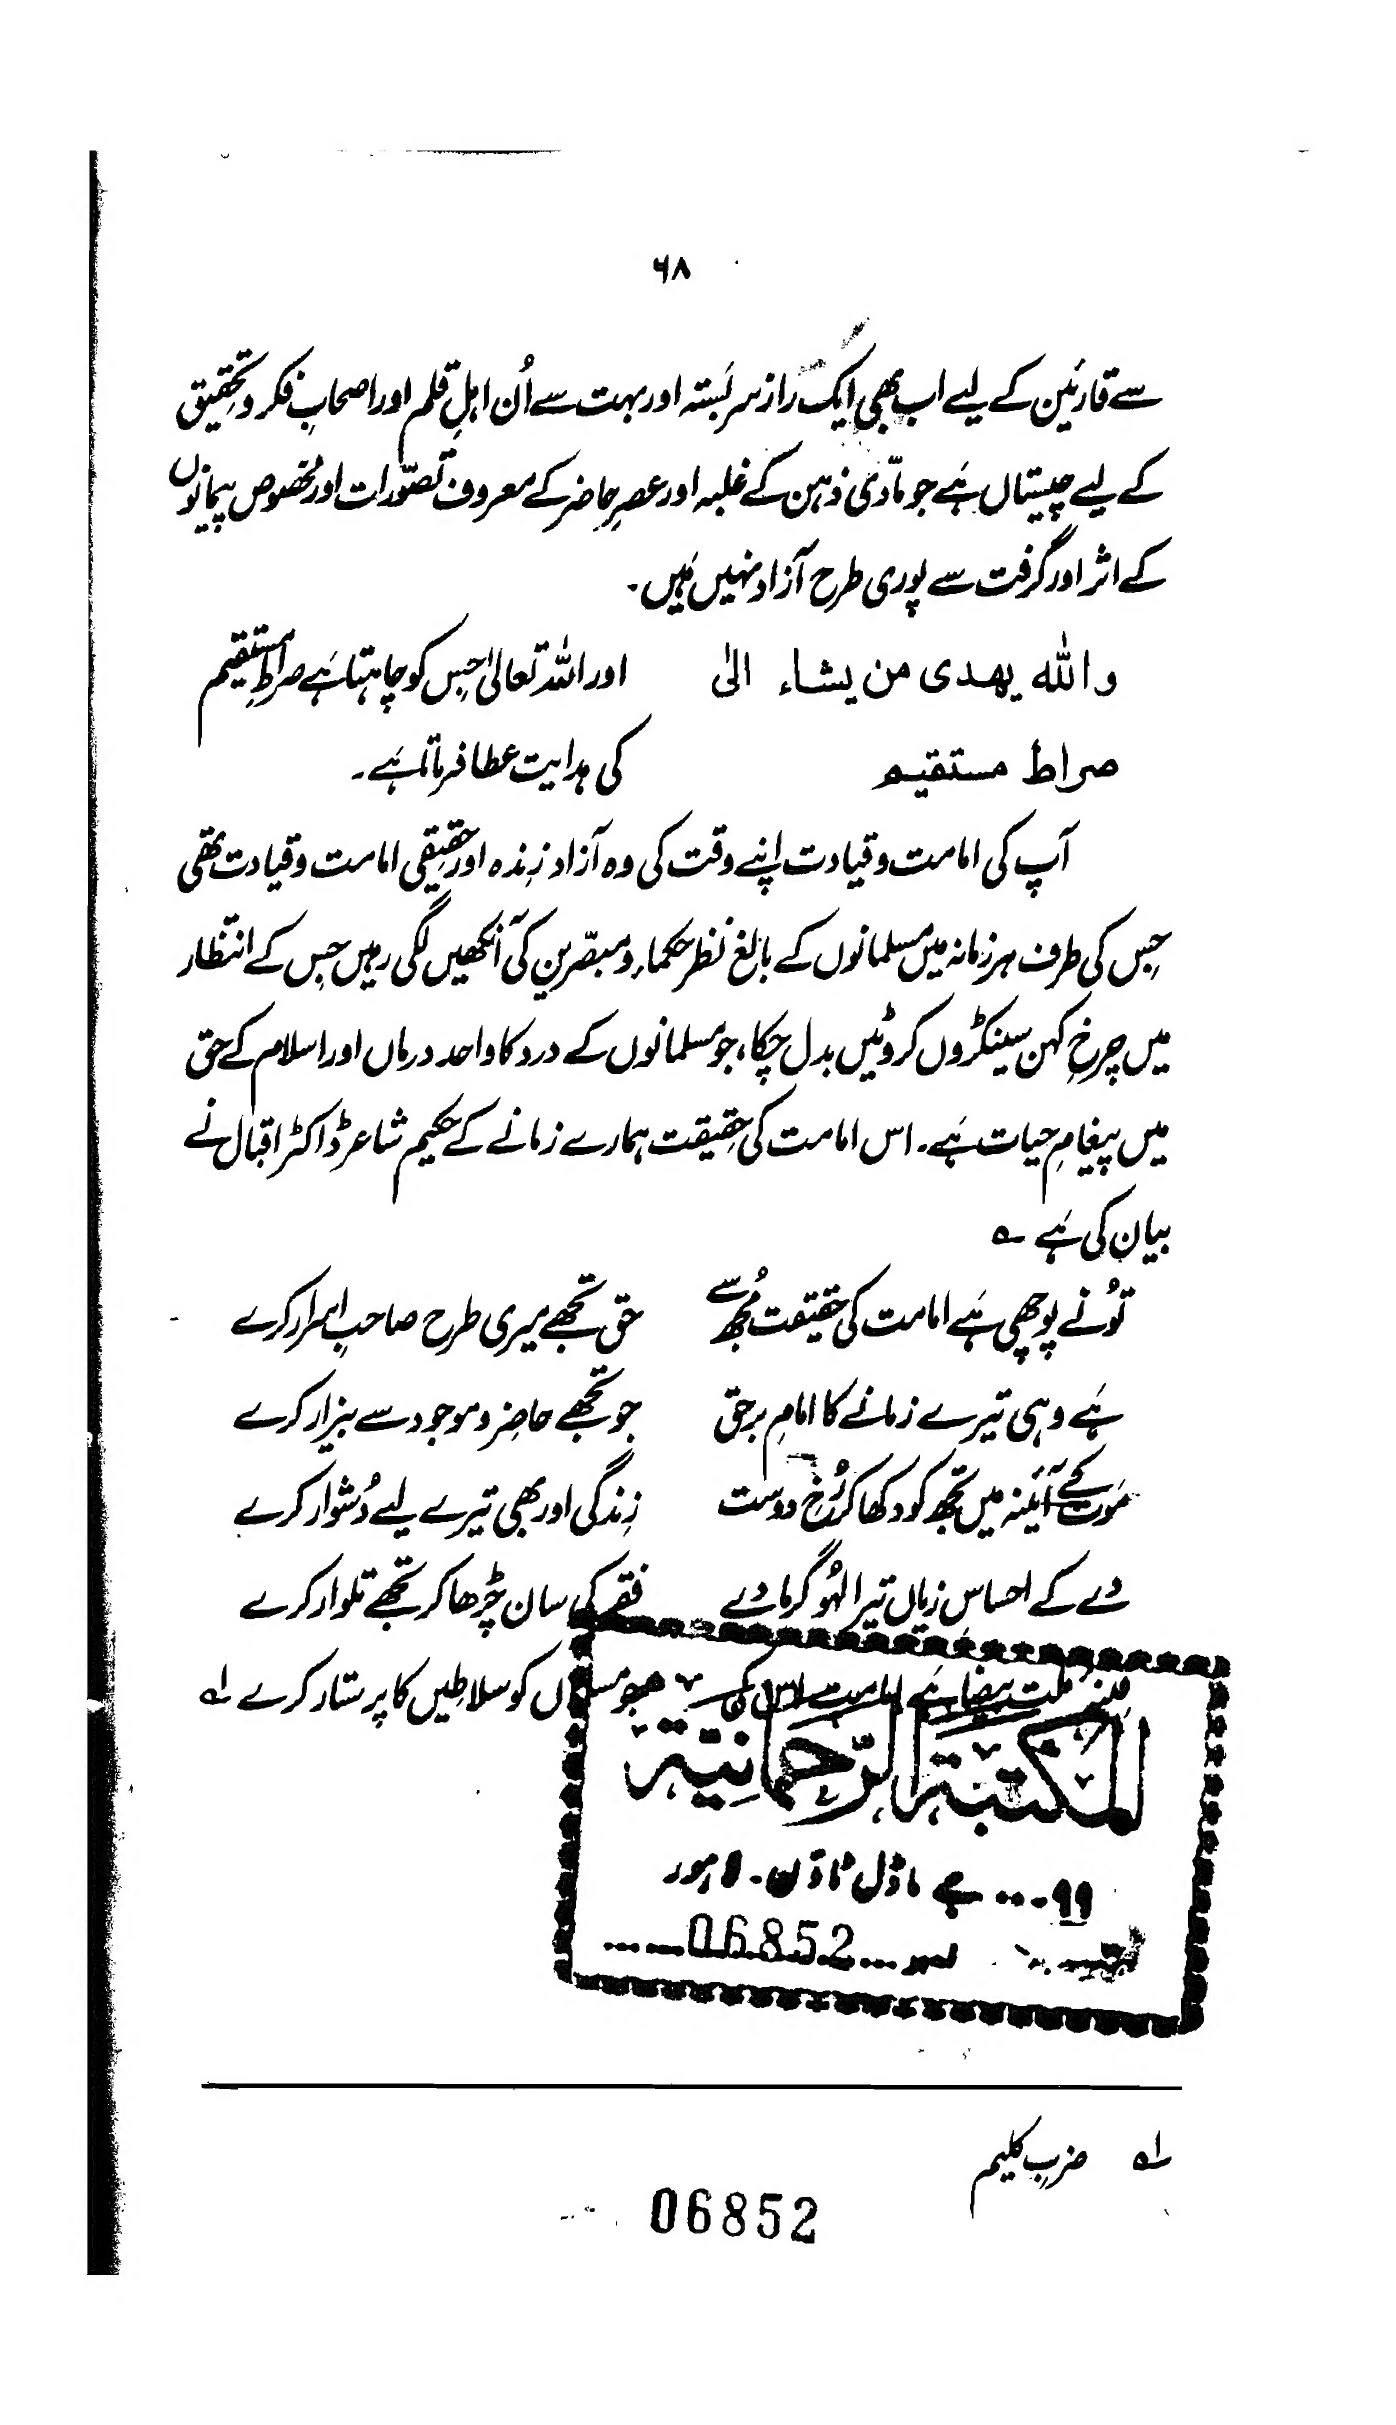 ۶۸
سے قارئین کے لیے اب بھی ایک راز سربستہ اور بہت سے اُن اہلِ قلم اور اصحابِ فکر و تحقیق
کے لیے چیستاں ہَے جو مادّی ذہن کے غلبہ اور عصرِ حاضر کے معروف تصوّرات اور مخصوص پیمانوں
کے اثر اور گرفت سے پوری طرح آزاد نہیں ہَیں۔
والله يهدى من يشاء الىٰ اور اللہ تعالیٰ جس کو چاہتا ہَے صراطِ مستقیم
صراط مستقيم کی ہدایت عطا فرماتا ہَے۔
آپ کی امامت و قیادت اپنے وقت کی وہ آزاد زندہ اور حقیقی امامت و قیادت تھی
جس کی طرف ہر زمانہ میں مسلمانوں کے بالغ نظر حکماء و مبصّرین کی آنکھیں لگی رہیں جس کے انتظار
میں چرخِ کہن سینکڑوں کروٹیں بدل چکا، جو مسلمانوں کے درد کا واحد درماں اور اسلام کے حق
میں پیغامِ حیات ہَے۔ اس امامت کی حقیقت ہمارے زمانے کے حکیم شاعر ڈاکٹر اقبال نے
بیان کی ہَے ؎
تُو نے پوچھی ہَے امامت کی حقیقت مُجھ سے حق تجھے میری طرح صاحبِ اسرار کرے
ہَے وہی تیرے زمانے کا امامِ برحق جو تجھے حاضر و موجود سے بیزار کرے
مَوت کے آئینہ میں تجھ کو دکھا کر رُخِ دوست زندگی اور بھی تیرے لیے دُشوار کرے
دے کے احساسِ زیاں تیرا لہُو گرما دے فقر کی سان چڑھا کر تجھے تلوار کرے
فتنۂ ملتِ بیضا ہَے امامت اس کی جو مسلماں کو سلاطیں کا پرستار کرے ؂۱
المكتبة الرّحمانيّة
۹۹ ۔۔۔ جے ماڈل ٹاؤن۔ لاہور
نمبر ...06852......
؂۱ ضربِ کلیم
06852